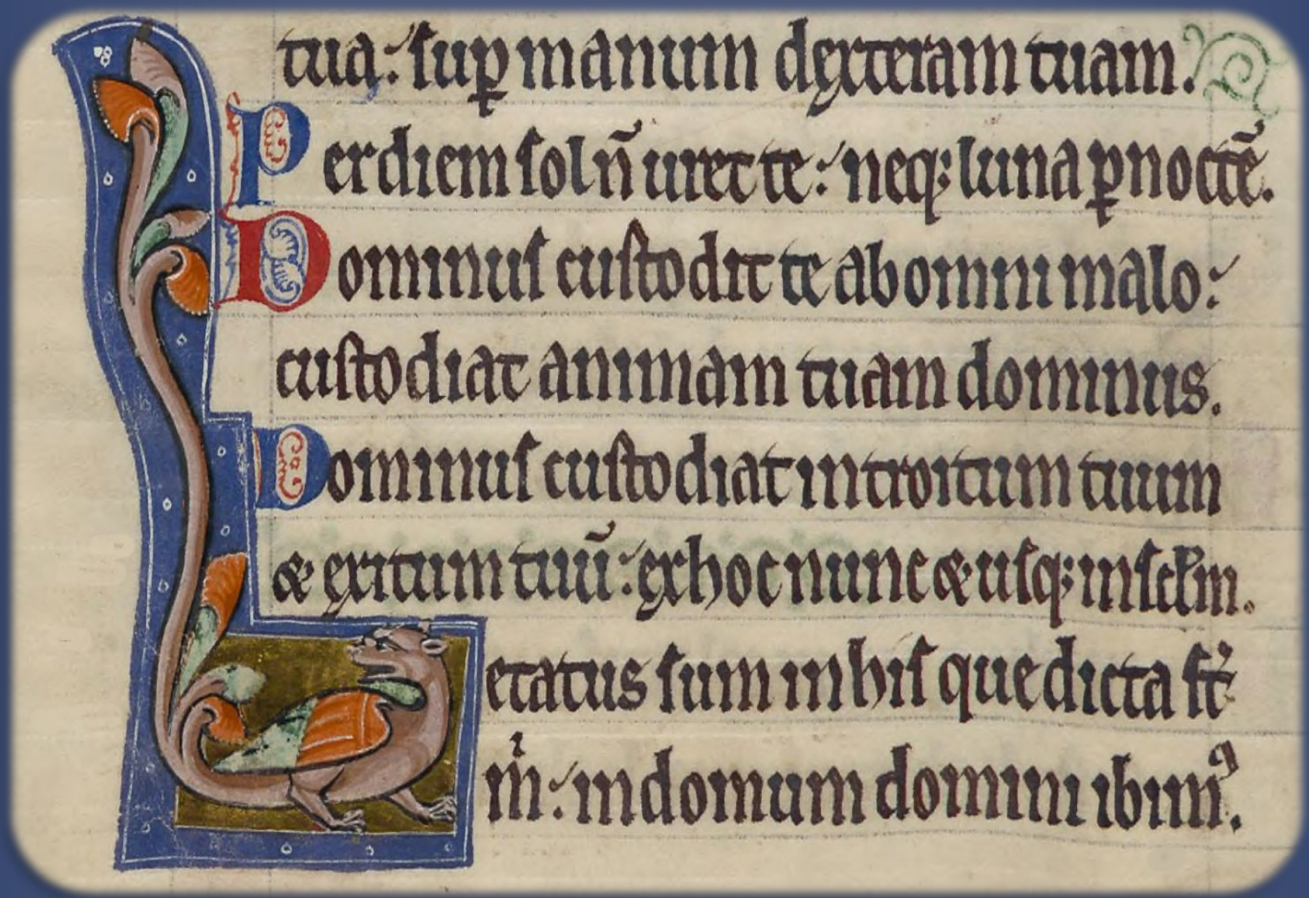 tua: sup̱ manum dęxteram tuam.
Per diem sol ñ uret te: neq; luna p̱ noctē.
Dominus custodit te ab omni malo:
custodiat animam tuam dominus.
Dominus custodiat introitum tuum
& ęxitum tuū: ęx hoc nunc & usq; in sc̄lm.
Letatus sum in his que dicta st̄
m̄: in domum domini ibim᾿.